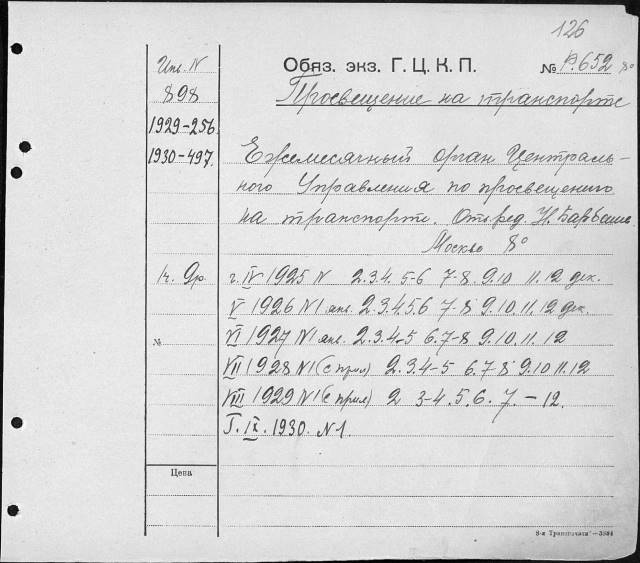 126
Инв. N
898
1929-256
1930-497.
Обяз. экз. Г. Ц. К. П.
№ Р.652 8°
Просвещение на транспорте
Ежемесячный орган Централь-
ного Управления по просвещению
на транспорте. Отв. ред. Н.
Москва 8°
г. IV 1925 N 2.3.4. 5-6 7-8. 9.10 11.12 дек.
V 1926 N1 янв. 2.3.4.5.6 7-8 9.10.11.12 дек.
№
VI 1927 N1 янв. 2.3.4-5 6.7-8 9.10.11.12
VII 1928 N1 (с прил) 2.3.4-5 6.7.8 9.10 11.12
VIII 1929 N1 (с прил) 2 3-4.5.6.7.-12.
Г. IX. 1930. N1.
Цена
8-я Транспечати—3884